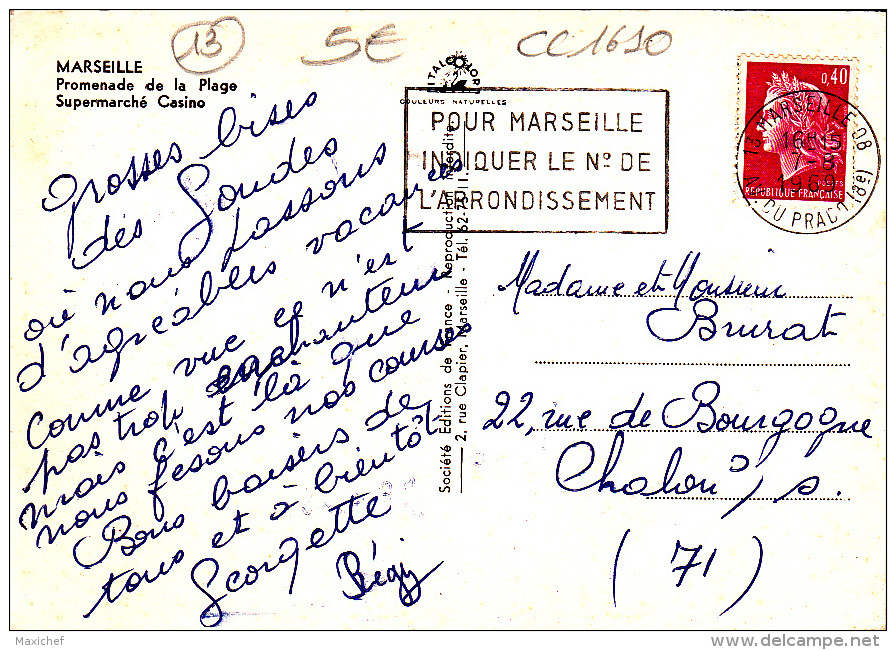 13 5E CC1610
MARSEILLE
Promenade de la Plage
Supermarché Casino
ITALCOLOR
COULEURS NATURELLES
POUR MARSEILLE
INDIQUER LE Nº DE
L'ARRONDISSEMENT
0,40
POSTES
REPUBLIQUE FRANÇAISE
13 MARSEILLE 08
16H15
DU PRADO (8e)
Grosses bises
des Goudes
où nous passons
d'agréables vacances
Comme vue ce n'est
pas trop enchanteur
mais c'est là que
nous fesons nos courses
Bons baisers de
tous et à bientôt
Georgette
Régi
Société Editions de France - Reproduction interdite
2, rue Clapier, Marseille - Tél. 62-
Madame et Monsieur
Brurat
22, rue de Bourgogne
Chalon s/ s.
(71)
Maxichef
delcampe.net